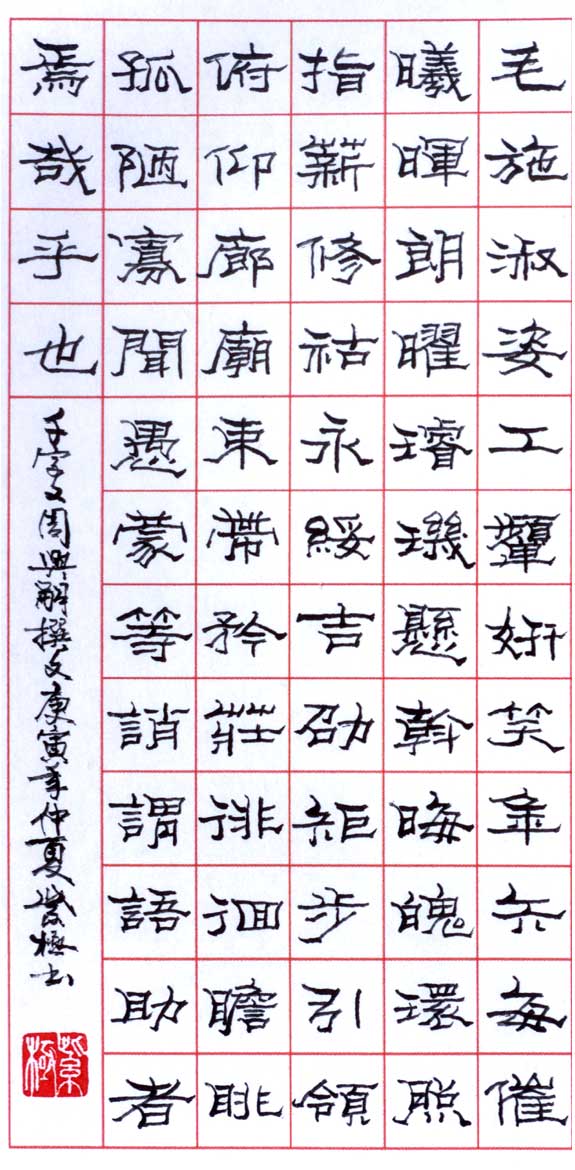 毛施淑姿工顰妍笑年矢每催
曦暉朗曜璿璣懸斡晦魄環照
指薪修祜永綏吉劭矩步引領
俯仰廊廟束帶矜莊徘徊瞻眺
孤陋寡聞愚蒙等誚謂語助者
焉哉乎也
千字文周興嗣撰文庚寅年仲夏紫極书
紫極